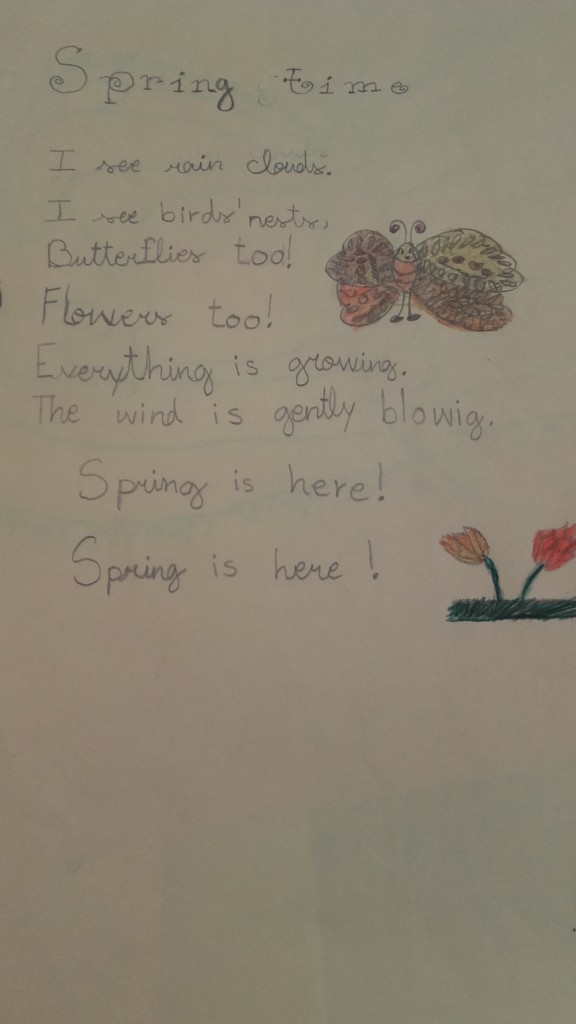 Spring time
I see rain clouds.
I see birds' nests,
Butterflies too!
Flowers too!
Everything is growing.
The wind is gently blowig.
Spring is here!
Spring is here !